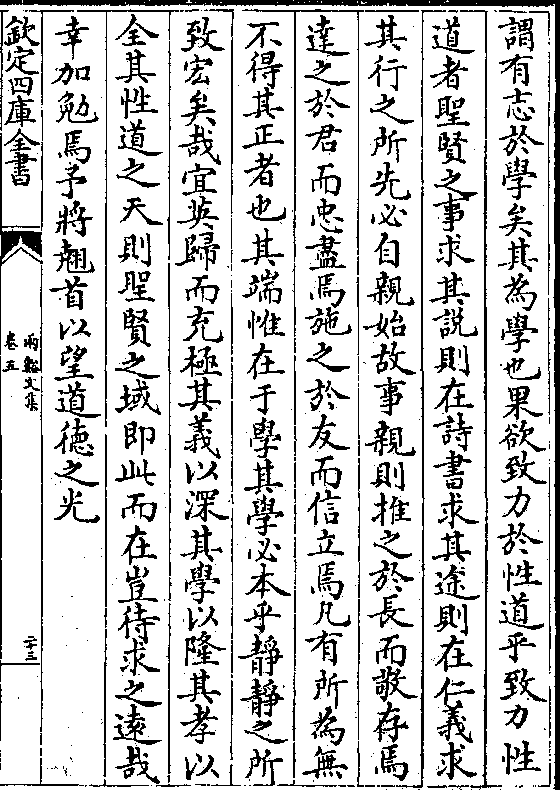 謂有志於學矣其為學也果欲致力於性道乎致力性
道者聖賢之事求其說則在詩書求其途則在仁義求
其行之所先必自親始故事親則推之於長而敬存焉
達之於君而忠盡焉施之於友而信立焉凡有所為無
不得其正者也其端惟在于學其學必本乎靜靜之所
致宏矣哉宜英歸而充極其義以深其學以隆其孝以
全其性道之天則聖賢之域即此而在豈待求之遠哉
幸加勉焉予將翹首以望道德之光
欽定四庫全書
兩谿文集
卷五
二十三